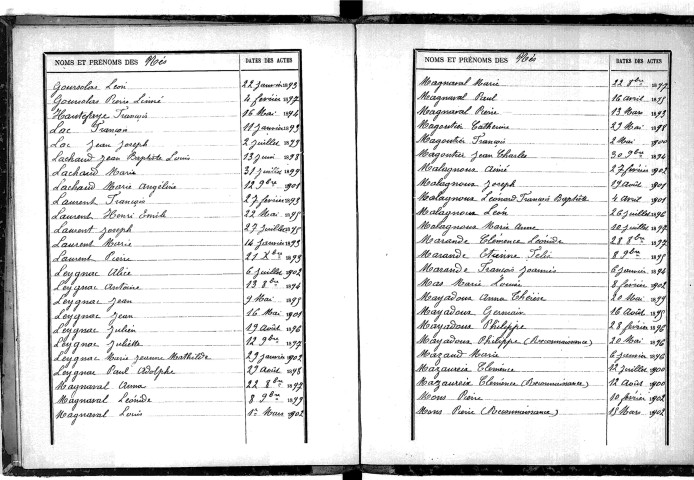 NOMS ET PRÉNOMS DES Nés DATES DES ACTES
Goursolas Léon 22 Janvier 1893
Goursolas Pierre Linné 4 février 1897
Hautefaye François 16 Mai 1894
Lac François 11 Janvier 1893
Lac Jean Joseph 2 Juillet 1899
Lachaud Jean Baptiste Louis 13 Juin 1898
Lachaud Marie 31 Juillet 1899
Lachaud Marie Angéline 12 9bre 1901
Laurent François 27 février 1893
Laurent Henri Emile 22 Mai 1895
Laurent Joseph 27 Juillet 1895
Laurent Marie 14 Janvier 1893
Laurent Pierre 21 Xbre 1893
Leygnac Alice 6 Juillet 1902
Leygnac Antoine 13 8bre 1894
Leygnac Jean 9 Mai 1895
Leygnac Jean 16 Mai 1901
Leygnac Julien 19 Août 1896
Leygnac Juliette 12 9bre 1897
Leygnac Marie Jeanne Mathilde 29 Janvier 1902
Leygnac Paul Adolphe 29 Août 1898
Magnaval Anna 22 8bre 1897
Magnaval Léonide 8 9bre 1899
Magnaval Louis 1er Mars 1902
NOMS ET PRÉNOMS DES Nés DATES DES ACTES
Magnaval Marie 22 8bre 1897
Magnaval Paul 16 Avril 1895
Magnaval Pierre 13 Mars 1893
Magoutier Catherine 29 Mai 1898
Magoutier François 2 Mai 1900
Magoutier Jean Charles 30 9bre 1894
Malagnoux Aimé 27 février 1902
Malagnoux Joseph 19 Août 1901
Malagnoux Léonard François Baptiste 4 Avril 1901
Malagnoux Léon 26 Juillet 1896
Malagnoux Marie Anne 10 Juillet 1897
Marande Clémence Léonide 28 8bre 1897
Marande Etienne Félix 8 9bre 1895
Marande François Joannès 6 Janvier 1894
Mas Marie Louise 8 février 1902
Mayadoux Anna Thérèse 20 Mai 1899
Mayadoux Germain 16 Août 1895
Mayadoux Philippe 28 février 1896
Mayadoux Philippe (Reconnaissance) 20 Mai 1896
Mazaud Marie 6 Janvier 1896
Mazaureix Clémence 12 Juillet 1900
Mazaureix Clémence (Reconnaissance) 12 Août 1900
Mons Pierre 10 février 1902
Mons Pierre (Reconnaissance) 13 Mars 1902